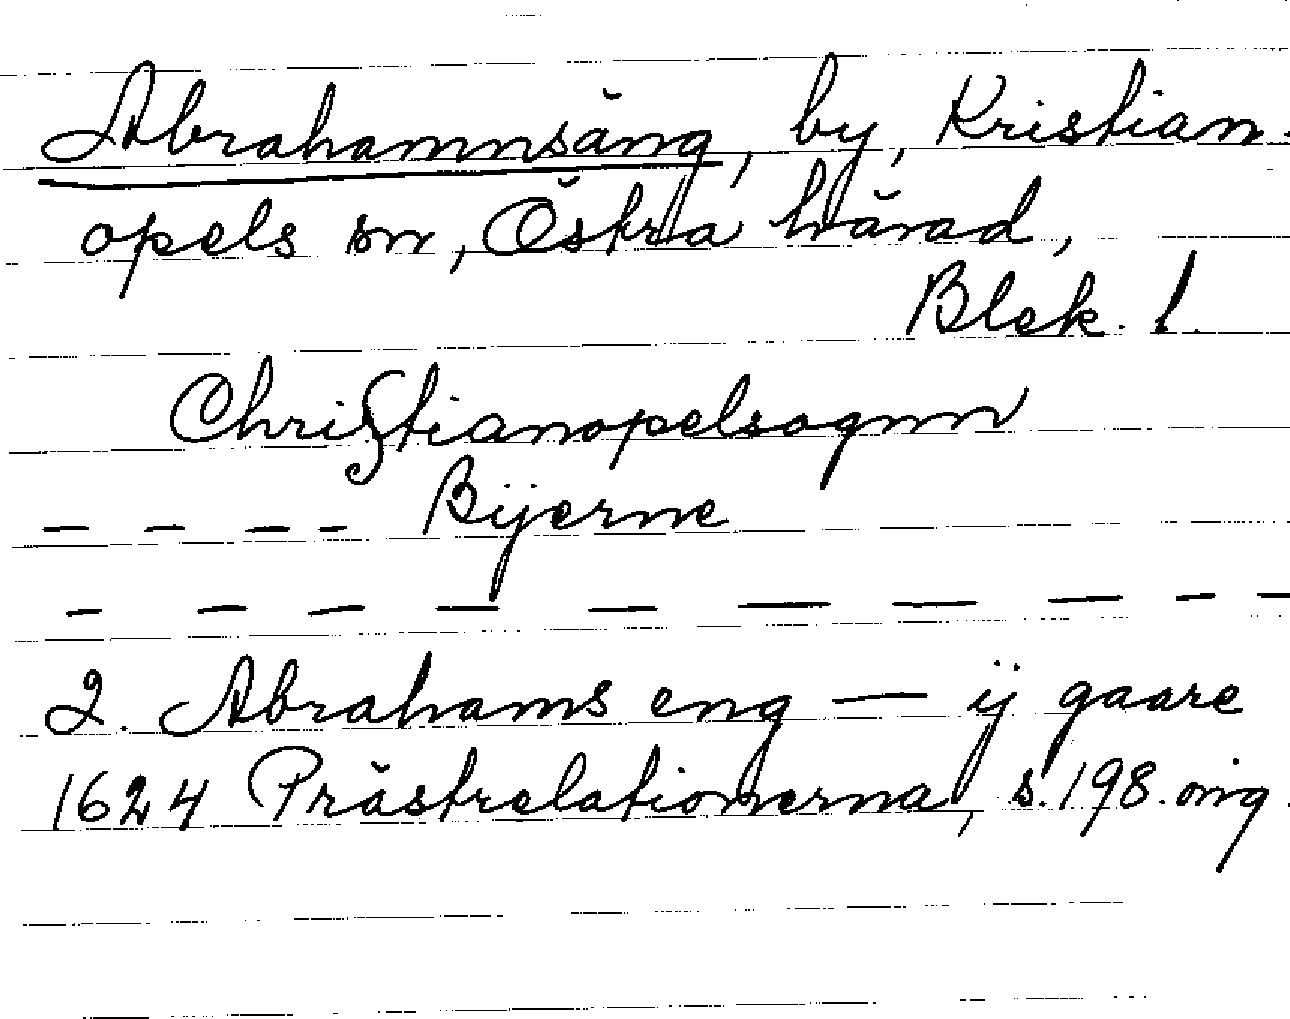 Abrahamnsäng, by, Kristian-
opels sn, Östra härad,
Blek. l.
Christianopelsognn
- - - - Bÿerne
- - - - - - - - - -
2. Abrahams eng — ij gaare
1624 Prästrelationerna, s. 198. orig.